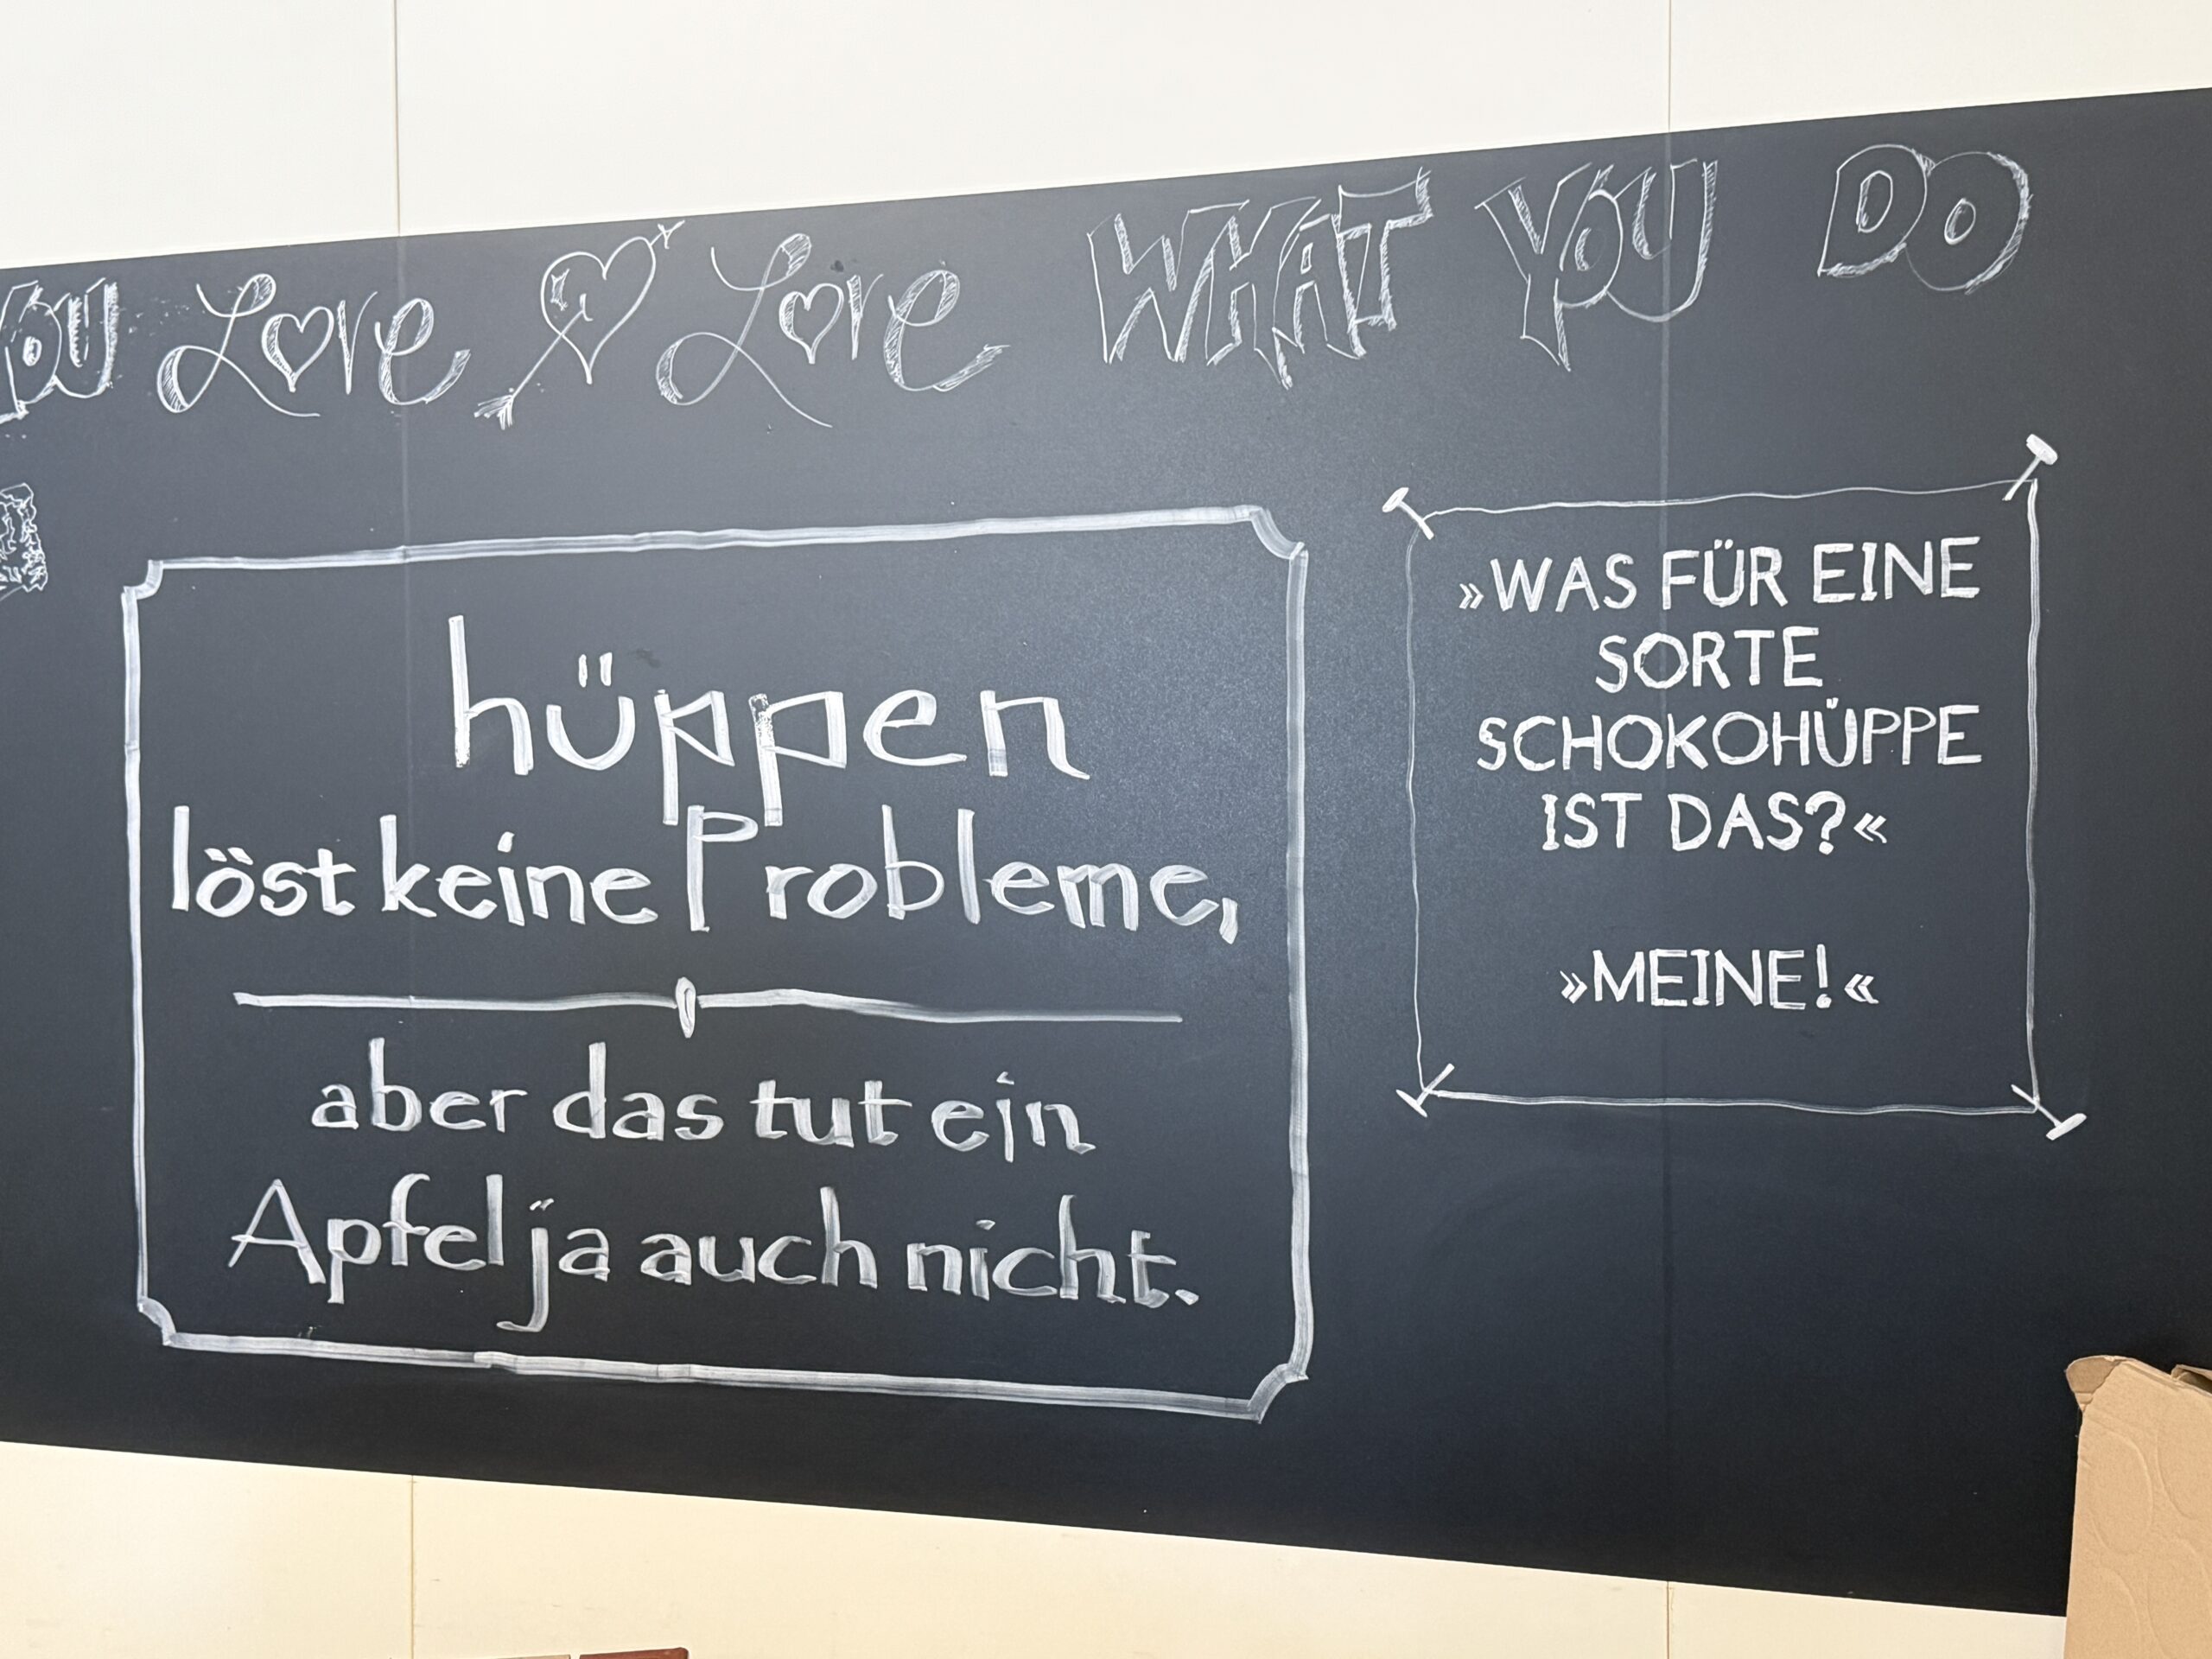 YOU Love & Love WHAT YOU DO
hüppen
löst keine Probleme,
aber das tut ein
Apfel ja auch nicht.
»WAS FÜR EINE
SORTE
SCHOKOHÜPPE
IST DAS?«
»MEINE!«